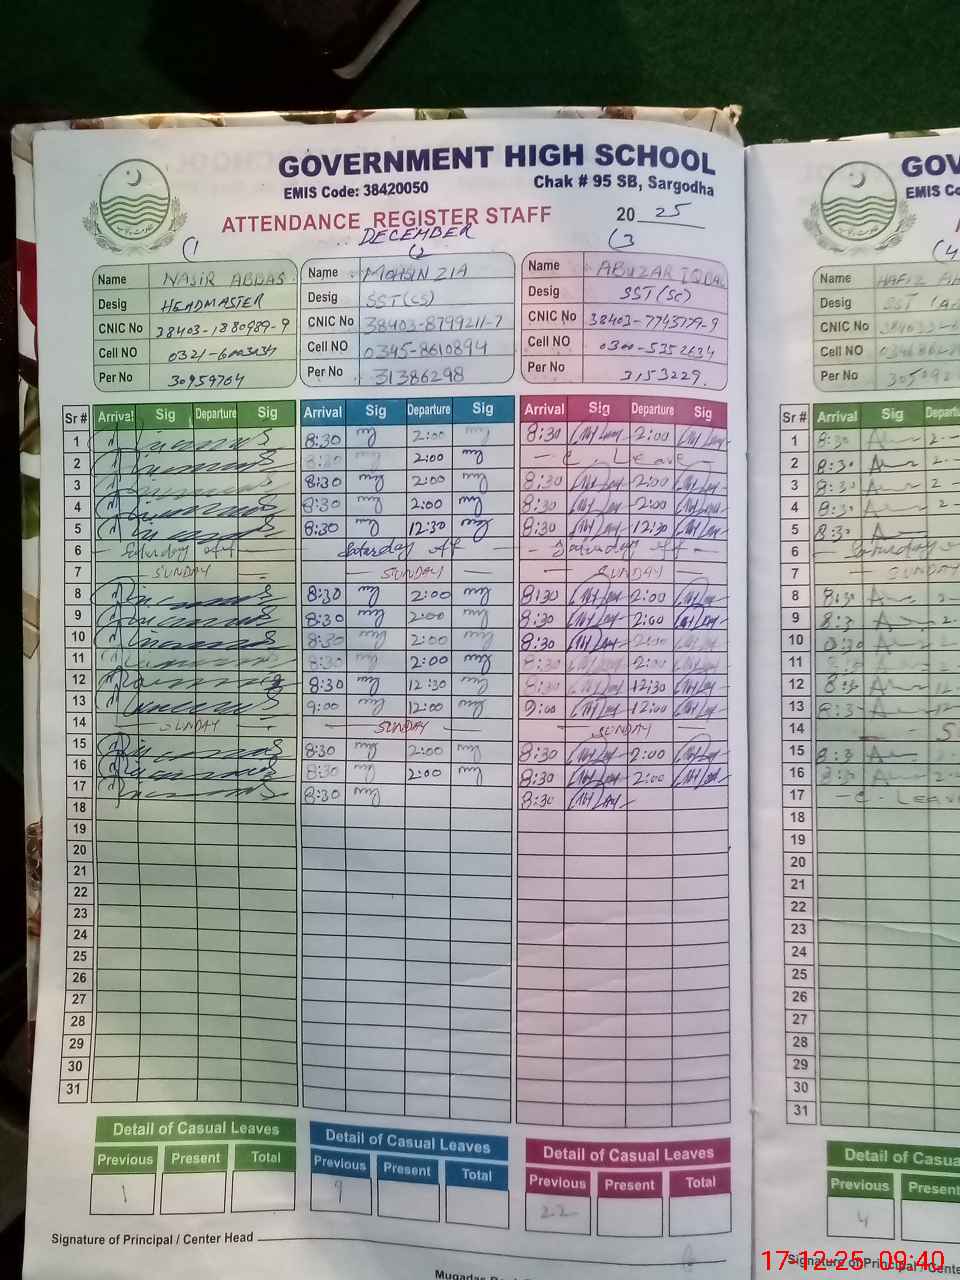 GOVERNMENT HIGH SCHOOL
EMIS Code: 38420050 Chak # 95 SB, Sargodha
ATTENDANCE REGISTER STAFF 20 25
DECEMBER
1 2 3
Name NASIR ABBAS Name MOHSIN ZIA Name ABUZAR IQBAL
Desig HEADMASTER Desig SST(CS) Desig SST(SC)
CNIC No 38403-1880989-9 CNIC No 38403-8799211-7 CNIC No 38403-7743779-9
Cell NO Cell NO 0345-8610894 Cell NO 0300-5352634
Per No 30959764 Per No 31386298 Per No 3153229.
Sr # Arrival Sig Departure Sig Arrival Sig Departure Sig Arrival Sig Departure Sig
1 8:30 2:00 8:30 2:00
2 8:30 2:00 - C. Leave -
3 8:30 2:00 8:30 2:00
4 8:30 2:00 8:30 2:00
5 8:30 12:30 8:30 12:30
6 Saturday off Saturday off Saturday off
7 SUNDAY SUNDAY SUNDAY
8 8:30 2:00 8:30 2:00
9 8:30 2:00 8:30 2:00
10 8:30 2:00 8:30 2:00
11 8:30 2:00 8:30 2:00
12 8:30 12:30 8:30 12:30
13 9:00 12:00 9:00 12:00
14 SUNDAY SUNDAY SUNDAY
15 8:30 2:00 8:30 2:00
16 8:30 2:00 8:30 2:00
17 8:30 8:30
18
19
20
21
22
23
24
25
26
27
28
29
30
31
Detail of Casual Leaves Detail of Casual Leaves Detail of Casual Leaves
Previous Present Total Previous Present Total Previous Present Total
1 9 22
Signature of Principal / Center Head
GOV
EMIS Co
4
Name HAFIZ
Desig SST
CNIC No
Cell NO
Per No
Sr # Arrival Sig
1 8:30 2
2 8:30 2
3 8:30 2
4 8:30 2
5 8:30
6 Saturday
7 SUNDAY
8 8:30
9 8:3 2
10 8:30
11
12 8:3 12
13 8:3 12
14
15 8:3 2
16 8:3 2
17 -C. Leave
18
19
20
21
22
23
24
25
26
27
28
29
30
31
Detail of Casua
Previous Present
4
Signature of Principal / Cente
17-12-25 09:40